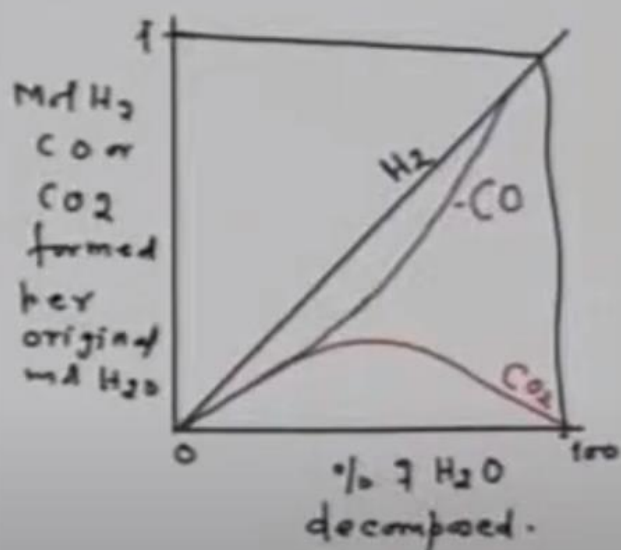 1
Mol H2
CO or
CO2
formed
per
original
mol H2O
H2
-CO
CO2
0
100
% of H2O
decomposed.